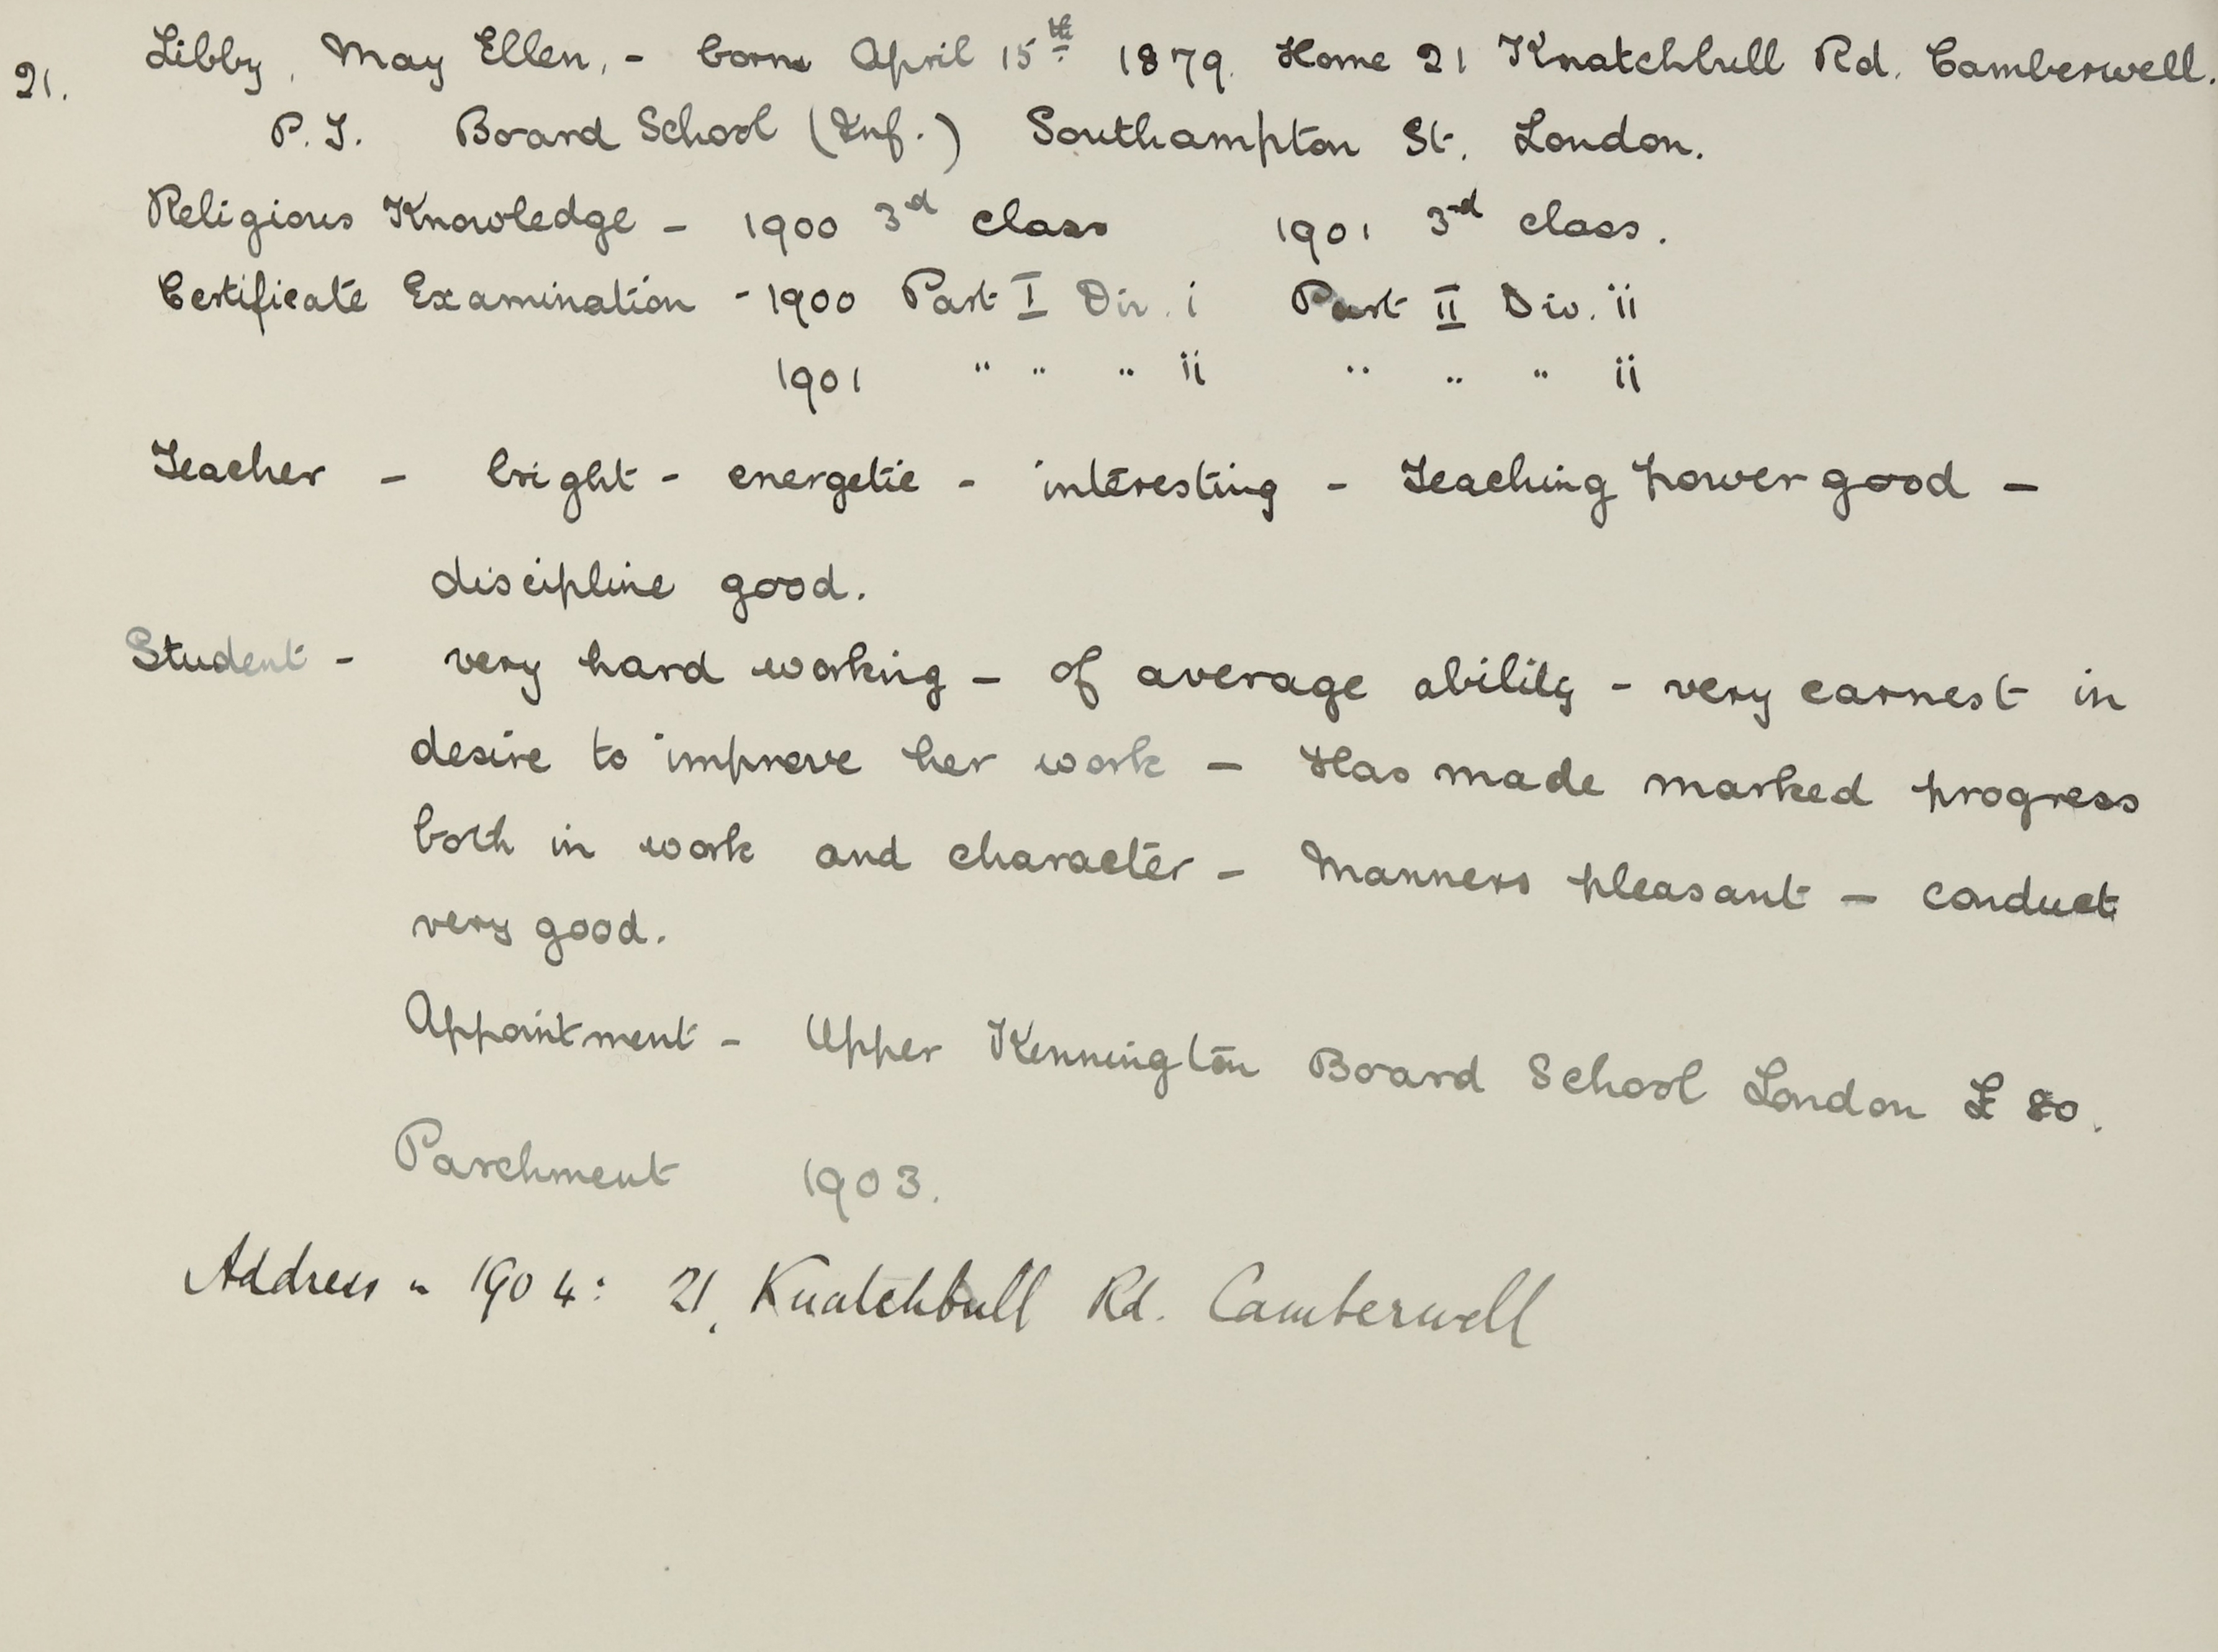 21. Libby, May Ellen, - born April 15th 1879. Home 21 Knatchbull Rd. Camberwell.
P.T. Board School (Inf.) Southampton St. London.
Religious Knowledge - 1900 3rd class 1901 3rd class.
Certificate Examination - 1900 Part I Div. i Part II Div. ii
1901 " " " ii " " " ii
Teacher - bright - energetic - interesting - Teaching power good -
discipline good.
Student - very hard working - of average ability - very earnest in
desire to improve her work - Has made marked progress
both in work and character - Manners pleasant - conduct
very good.
Appointment - Upper Kennington Board School London £80.
Parchment 1903.
Address - 1904: 21, Knatchbull Rd. Camberwell